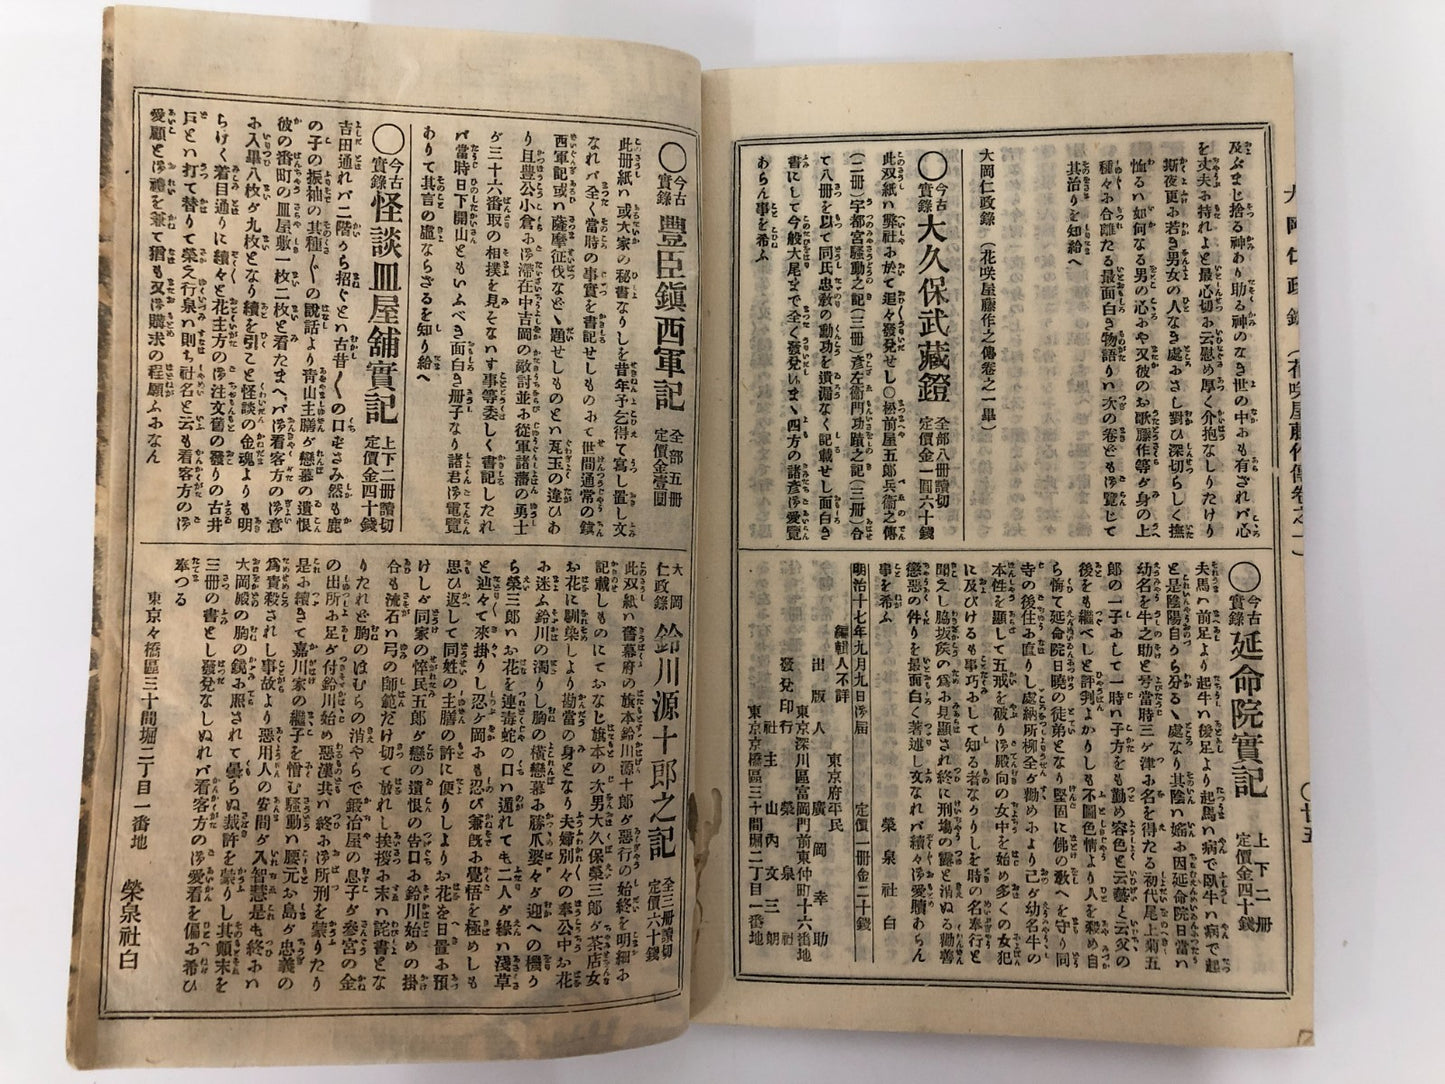 及ぶまじ捨る神あり助る神のなき世の中おも有されバ心
を丈夫お持れよと最心切お云慰め厚く介抱なしりたけり
斯夜更お若き男女の人なき處おさし對ひ深切らしく撫
恤るハ如何なる男の心おや又彼のお歌藤作等ゲ身の上
種々お合離たる最面白き物語りハ次の卷ども御覽じて
其治りを知給へ
大岡仁政錄 (花咲屋藤作之傳卷之一畢)
○今古實錄大久保武藏鐙 全部八冊讀切 定價金一圓六十錢
此双紙ハ弊社お於て追々發兌せし○松前屋五郎兵衞之傳
(二冊)宇都宮騷動之記(三冊)彦左衞門功蹟之記(三冊)合
て八冊を以て同氏忠敎の勳功を遺漏なく記載せし面白き
書にして今般大尾まで全く發兌いまゝ四方の諸彦御愛覽
あらん事を希ふ
○今古實錄延命院實記 上下二冊 定價金四十錢
夫馬ハ前足より起牛ハ後足より起馬ハ病で臥牛ハ病で起
と是陰陽自うら分るゝ處なり其陰ハ婬お因延命院日當ハ
幼名を牛之助と号當時三ゲ津お名を得たる初代尾上菊五
郎の一子おして一時ハ子方をも勤め容色と云藝と云父の
後をも繼べしと評判よかりしも不圖色情より人を殺め自
ら悔て延命院日曉の徒弟となり堅固に佛の敎へを守り同
寺の後住お直りし處納所柳全ゲ勸めおより己ゲ幼名牛の
本性を顯して五戒を破り御殿向の女中を始め多くの女犯
に及びけるも事巧おして知る者なりしを時の名奉行と
聞えし脇坂矦の爲お見顯され終に刑塲の露と消ぬる勸善
懲惡の件りを最面白く著述し文なれバ續々御愛購あらん
事を希ふ 榮泉社白
明治十七年九月九日御届 定價一冊金二十錢
編輯人不詳
東京府平民
出版人 廣岡幸助
東京深川區富岡門前東仲町十六番地
發兌印行 榮泉社
社主 山内文三郎
東京京橋區三十間堀二丁目一番地
○今古實錄豐臣鎭西軍記 全部五冊 定價金壹圓
此冊紙ハ或大家の秘書なりしを昔年予乞得て寫し置し文
なれバ全く當時の事實を書記せしものおて世間通常の鎭
西軍記或ハ薩摩征伐などゝ題せしものとハ瓦玉の違ひあ
り且豊公小倉お御滯在中吉岡の敵討並お從軍諸藩の勇士
ゲ三十六番取の相撲を見そなハす事等委しく書記したれ
バ當時日下開山ともいふべき面白き冊子なり諸君御電覽
ありて其言の虛ならざるを知り給へ
○今古實錄怪談皿屋舖實記 上下二冊讀切 定價金四十錢
吉田通れバ二階から招ぐとハ古昔〱の口ずさみ然も鹿
の子の振袖の其種〱の說話より靑山主膳ゲ戀慕の遺恨
彼の番町の皿屋敷一枚二枚と看たまへバ御看客方の御意
お入畢八枚ゲ九枚となり續を引こと怪談の金魂よりも明
らけく着目通りに續々と花主方の御注文舊の發りの古井
戶とハ打て替りて榮之行泉ハ則ち社名と云も看客方の御
愛顧と御禮を兼て猶も又御購求の程願ふおなん
大岡仁政錄鈴川源十郎之記 全三冊讀切 定價六十錢
此双紙ハ舊幕府の旗本鈴川源十郎ゲ惡行の始終を明細お
記載しものにておなじ旗本の次男大久保榮三郎ゲ茶店女
お花に馴染しより勘當の身となり夫婦別々の奉公中お花
お迷ふ鈴川の濁りし胸の橫戀慕お勝爪婆々ゲ迎への機り
ら榮三郎ハお花を連毒蛇の口ハ遁れても二人ゲ緣ハ淺草
と辿々て來掛りし忍ゲ岡おも忍び兼旣お覺悟を極めしも
思ひ返して同姓の主膳の許に便りしよりお花を日置お預
けしゲ同家の悴民五郎ゲ戀の遺恨の告口お鈴川始めの掛
合も流石ハ弓の師範だけ切て放れし挨拶お末ハ詫書とな
りたれど胸のほむらの消やらで鍛冶屋の息子ゲ參宮の金
の出所お足ゲ付鈴川始め惡漢共ハ終お御所刑を蒙りたり
是お續きて嘉川家の繼子を憎む騷動ハ腰元お島ゲ忠義の
爲責殺され事故より惡用人の安間ゲ入智慧是も終おハ
大岡殿の胸の鏡お照されて曇らぬ裁許を蒙りし其顚末を
三冊の書とし發兌なしぬれバ看客方の御愛看を偏お希ひ
奉つる
東京々橋區三十間堀二丁目一番地 榮泉社白